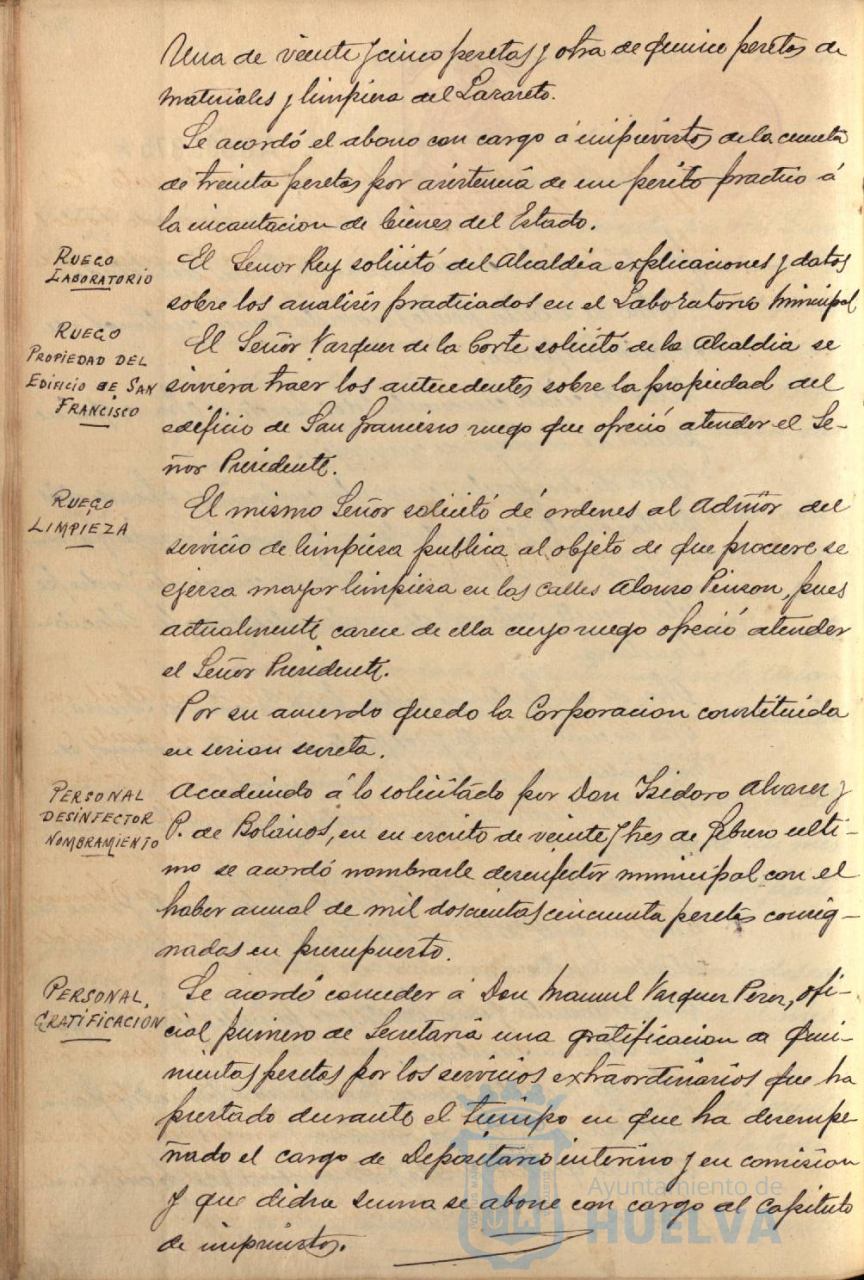 Una de veinte y cinco pesetas y otra de quince pesetas de
materiales y limpieza del Lazareto.
Se acordó el abono con cargo á imprevistos de la cuenta
de treinta pesetas por asistencia de un perito practico á
la incautacion de bienes del Estado.
RUEGO
LABORATORIO
El Señor Rey solicitó del Alcaldia explicaciones y datos
sobre los analisis practicados en el Laboratorio municipal
RUEGO
PROPIEDAD DEL
EDIFICIO DE SAN
FRANCISCO
El Señor Vazquez de la Corte solicitó de la Alcaldia se
sirviera traer los antecedentes sobre la propiedad del
edificio de San Francisco ruego que ofreció atender el Se-
ñor Presidente.
RUEGO
LIMPIEZA
El mismo Señor solicitó dé ordenes al Admor del
servicio de limpieza publica al objeto de que procure se
ejerza mayor limpieza en las calles Alonso Pinzon, pues
actualmente carece de ella cuyo ruego ofreció atender
el Señor Presidente.
Por su acuerdo quedo la Corporacion constituida
en sesion secreta.
PERSONAL
DESINFECTOR
NOMBRAMIENTO
Accediendo á lo solicitado por Don Isidoro Alvarez y
P. de Bolaños, en su escrito de veinte y tres de febrero ulti-
mo se acordó nombrarle desinfector municipal con el
haber anual de mil doscientas cincuenta pesetas consig-
nadas en presupuesto.
PERSONAL,
GRATIFICACION
Se acordó conceder á Don Manuel Vazquez Perez, ofi-
cial primero de Secretaria una gratificacion de Qui-
nientas pesetas por los servicios extraordinarios que ha
prestado durante el tiempo en que ha desempe-
ñado el cargo de Depositario interino y en comision
y que dicha suma se abone con cargo al Capitulo
de imprevistos.
Ayuntamiento de
HUELVA